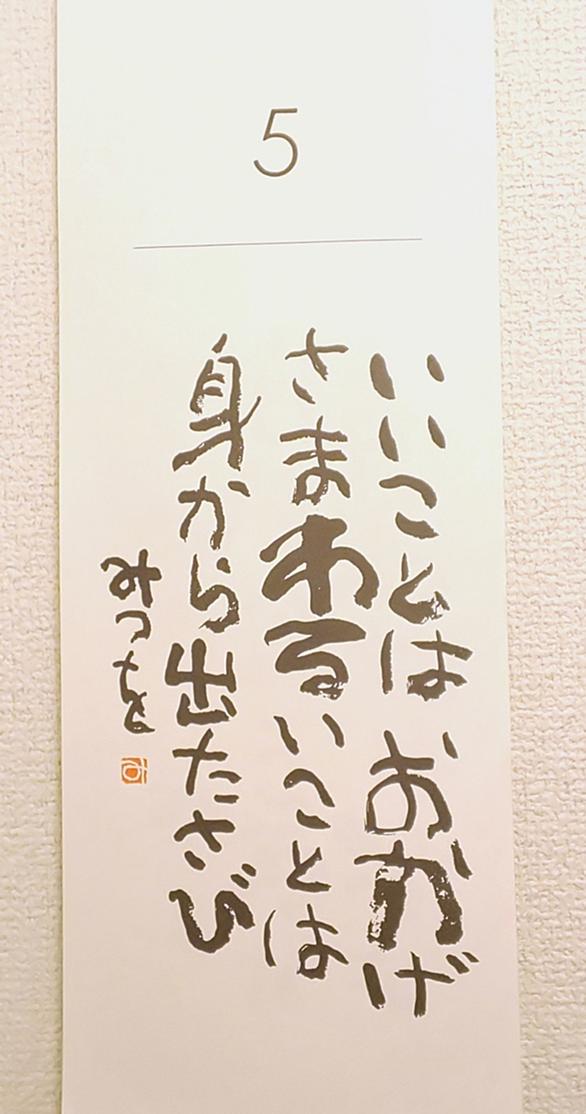 5
いいことは おかげ
さまわるいことは
身から出たさび
みつを
み